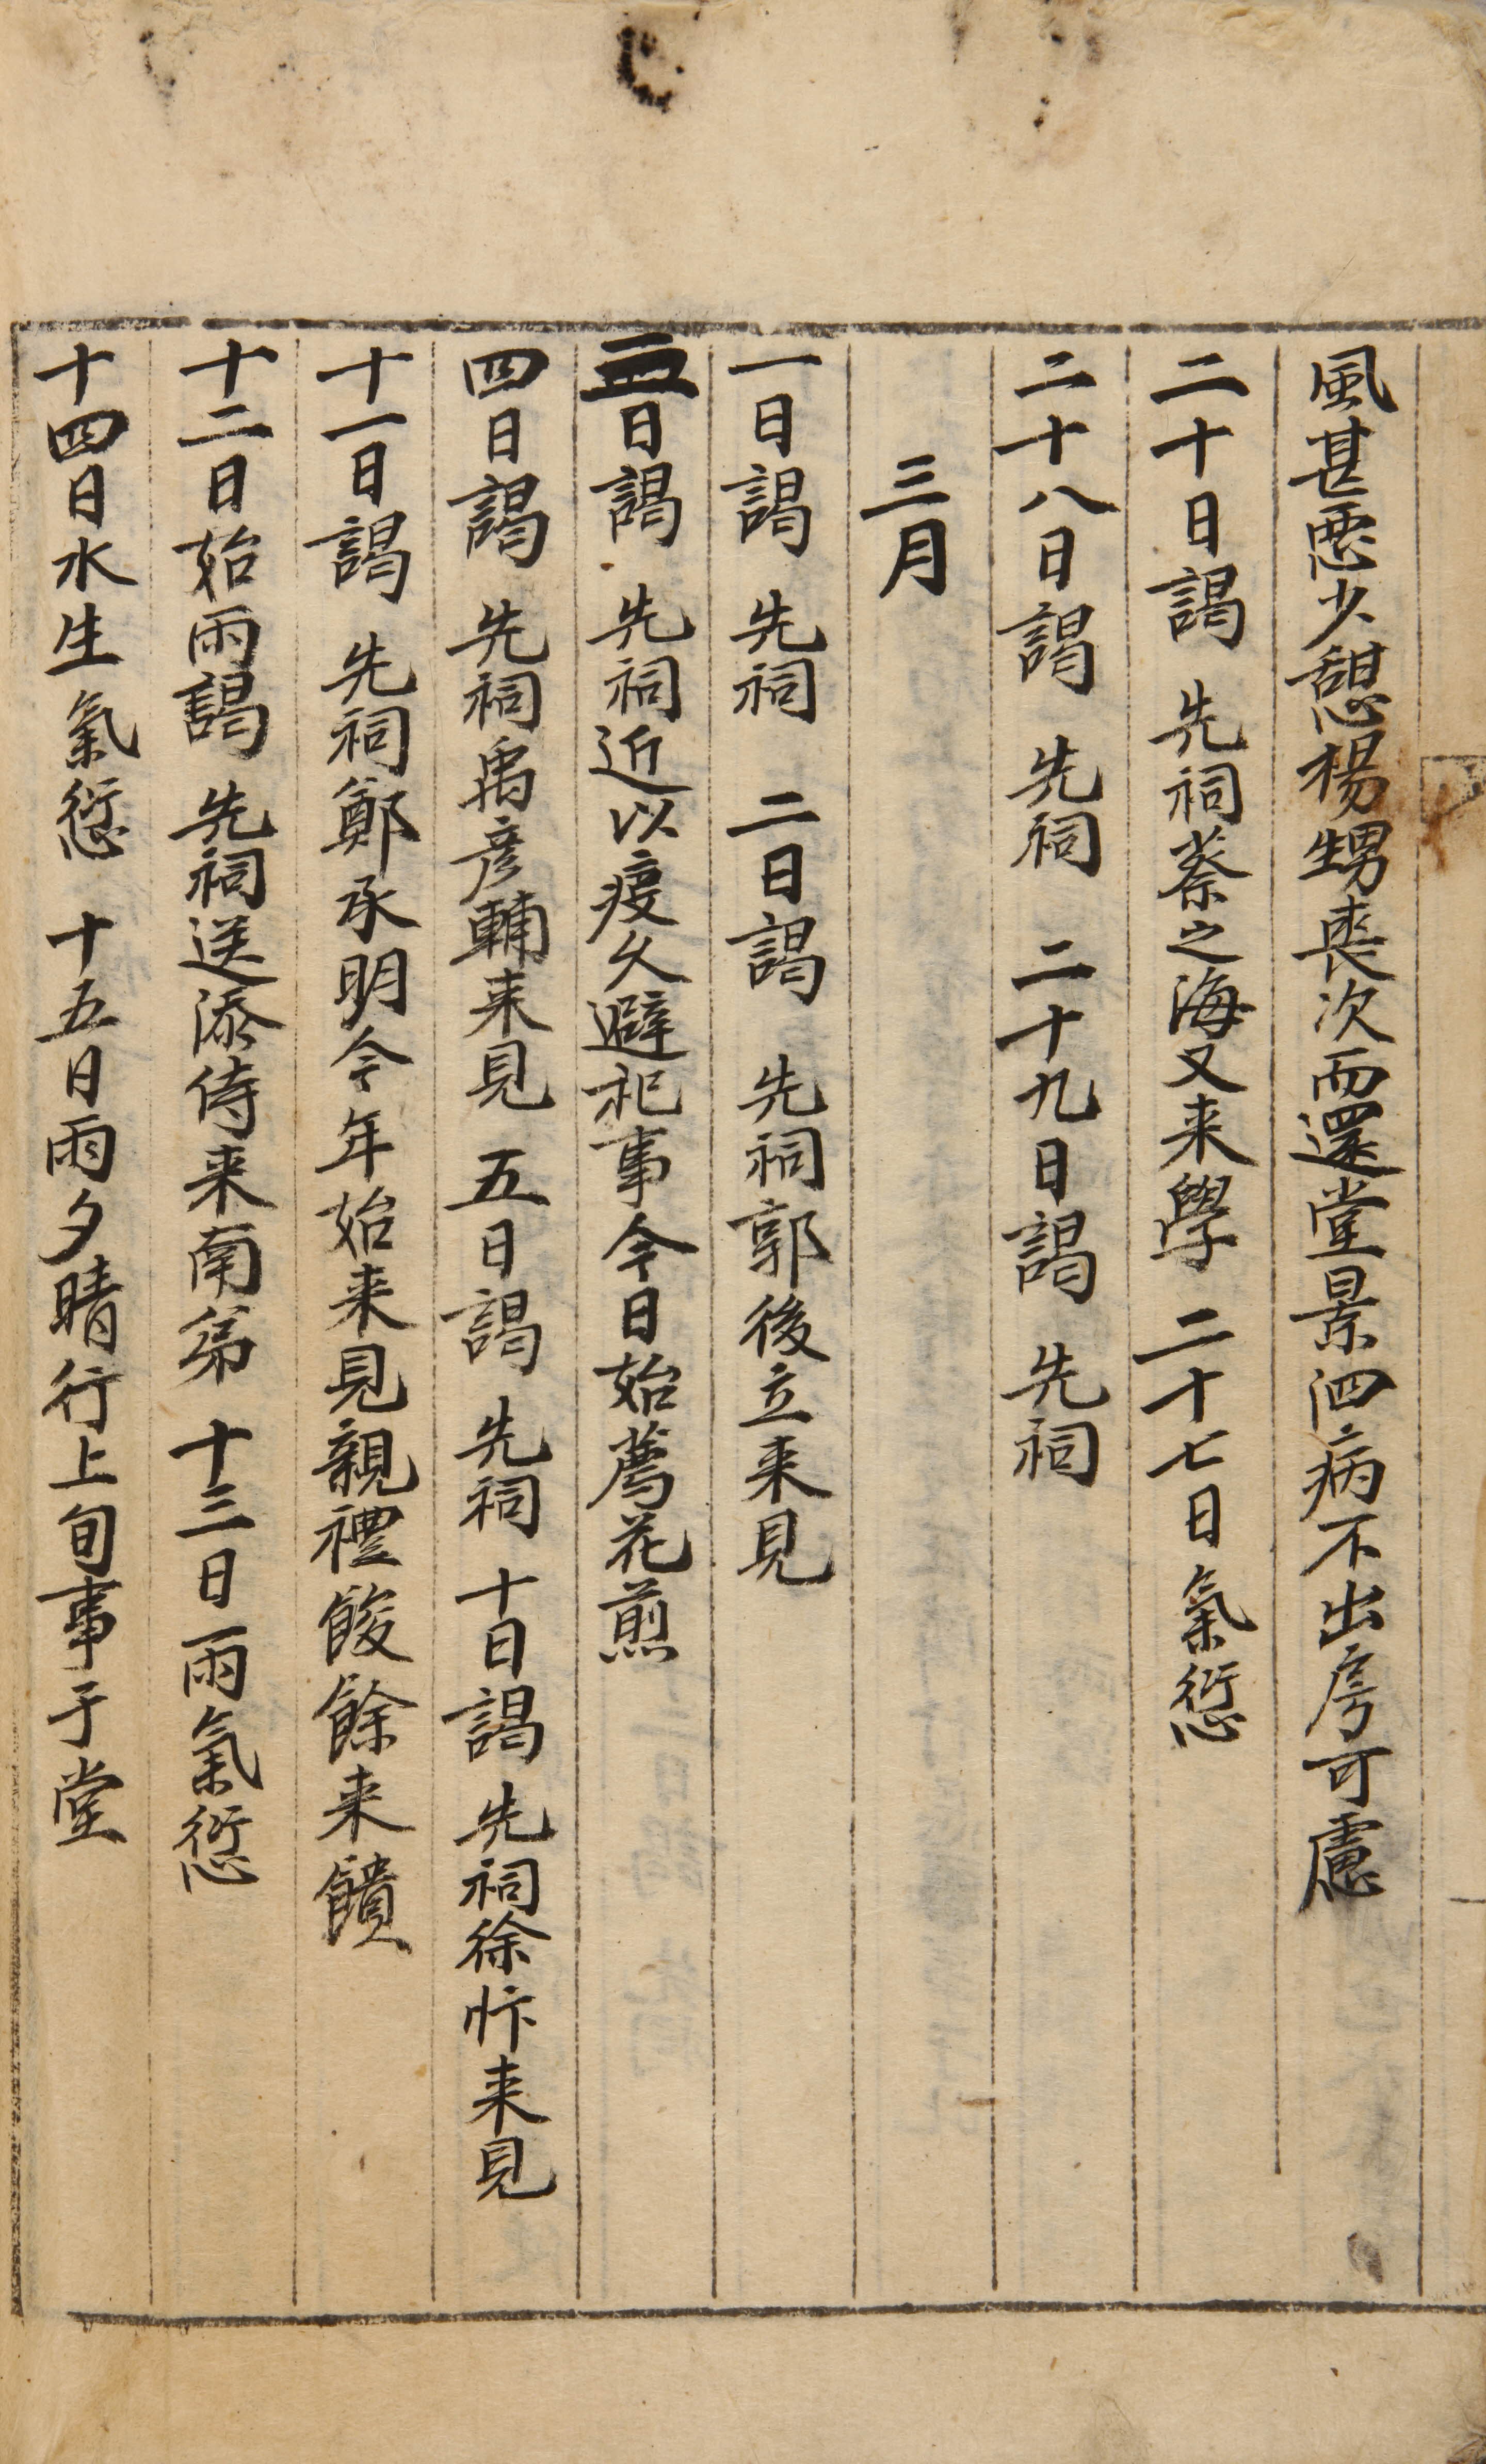 風甚悪少憇楊甥喪次而還堂景泗病不出房可慮
二十日謁　先祠蔡之海又来學　二十七日氣愆
二十八日謁　先祠　二十九日謁　先祠
三月
一日謁　先祠　二日謁　先祠郭後立来見
三日謁　先祠近以疫久避祀事今日始薦花煎
四日謁　先祠禹彦輔来見　五日謁　先祠　十日謁　先祠徐忭来見
十一日謁　先祠鄭承明今年始来見親禮餕餘来饋
十二日始雨謁　先祠送添侍来南第　十三日雨氣愆
十四日水生氣愆　十五日雨夕晴行上旬事于堂